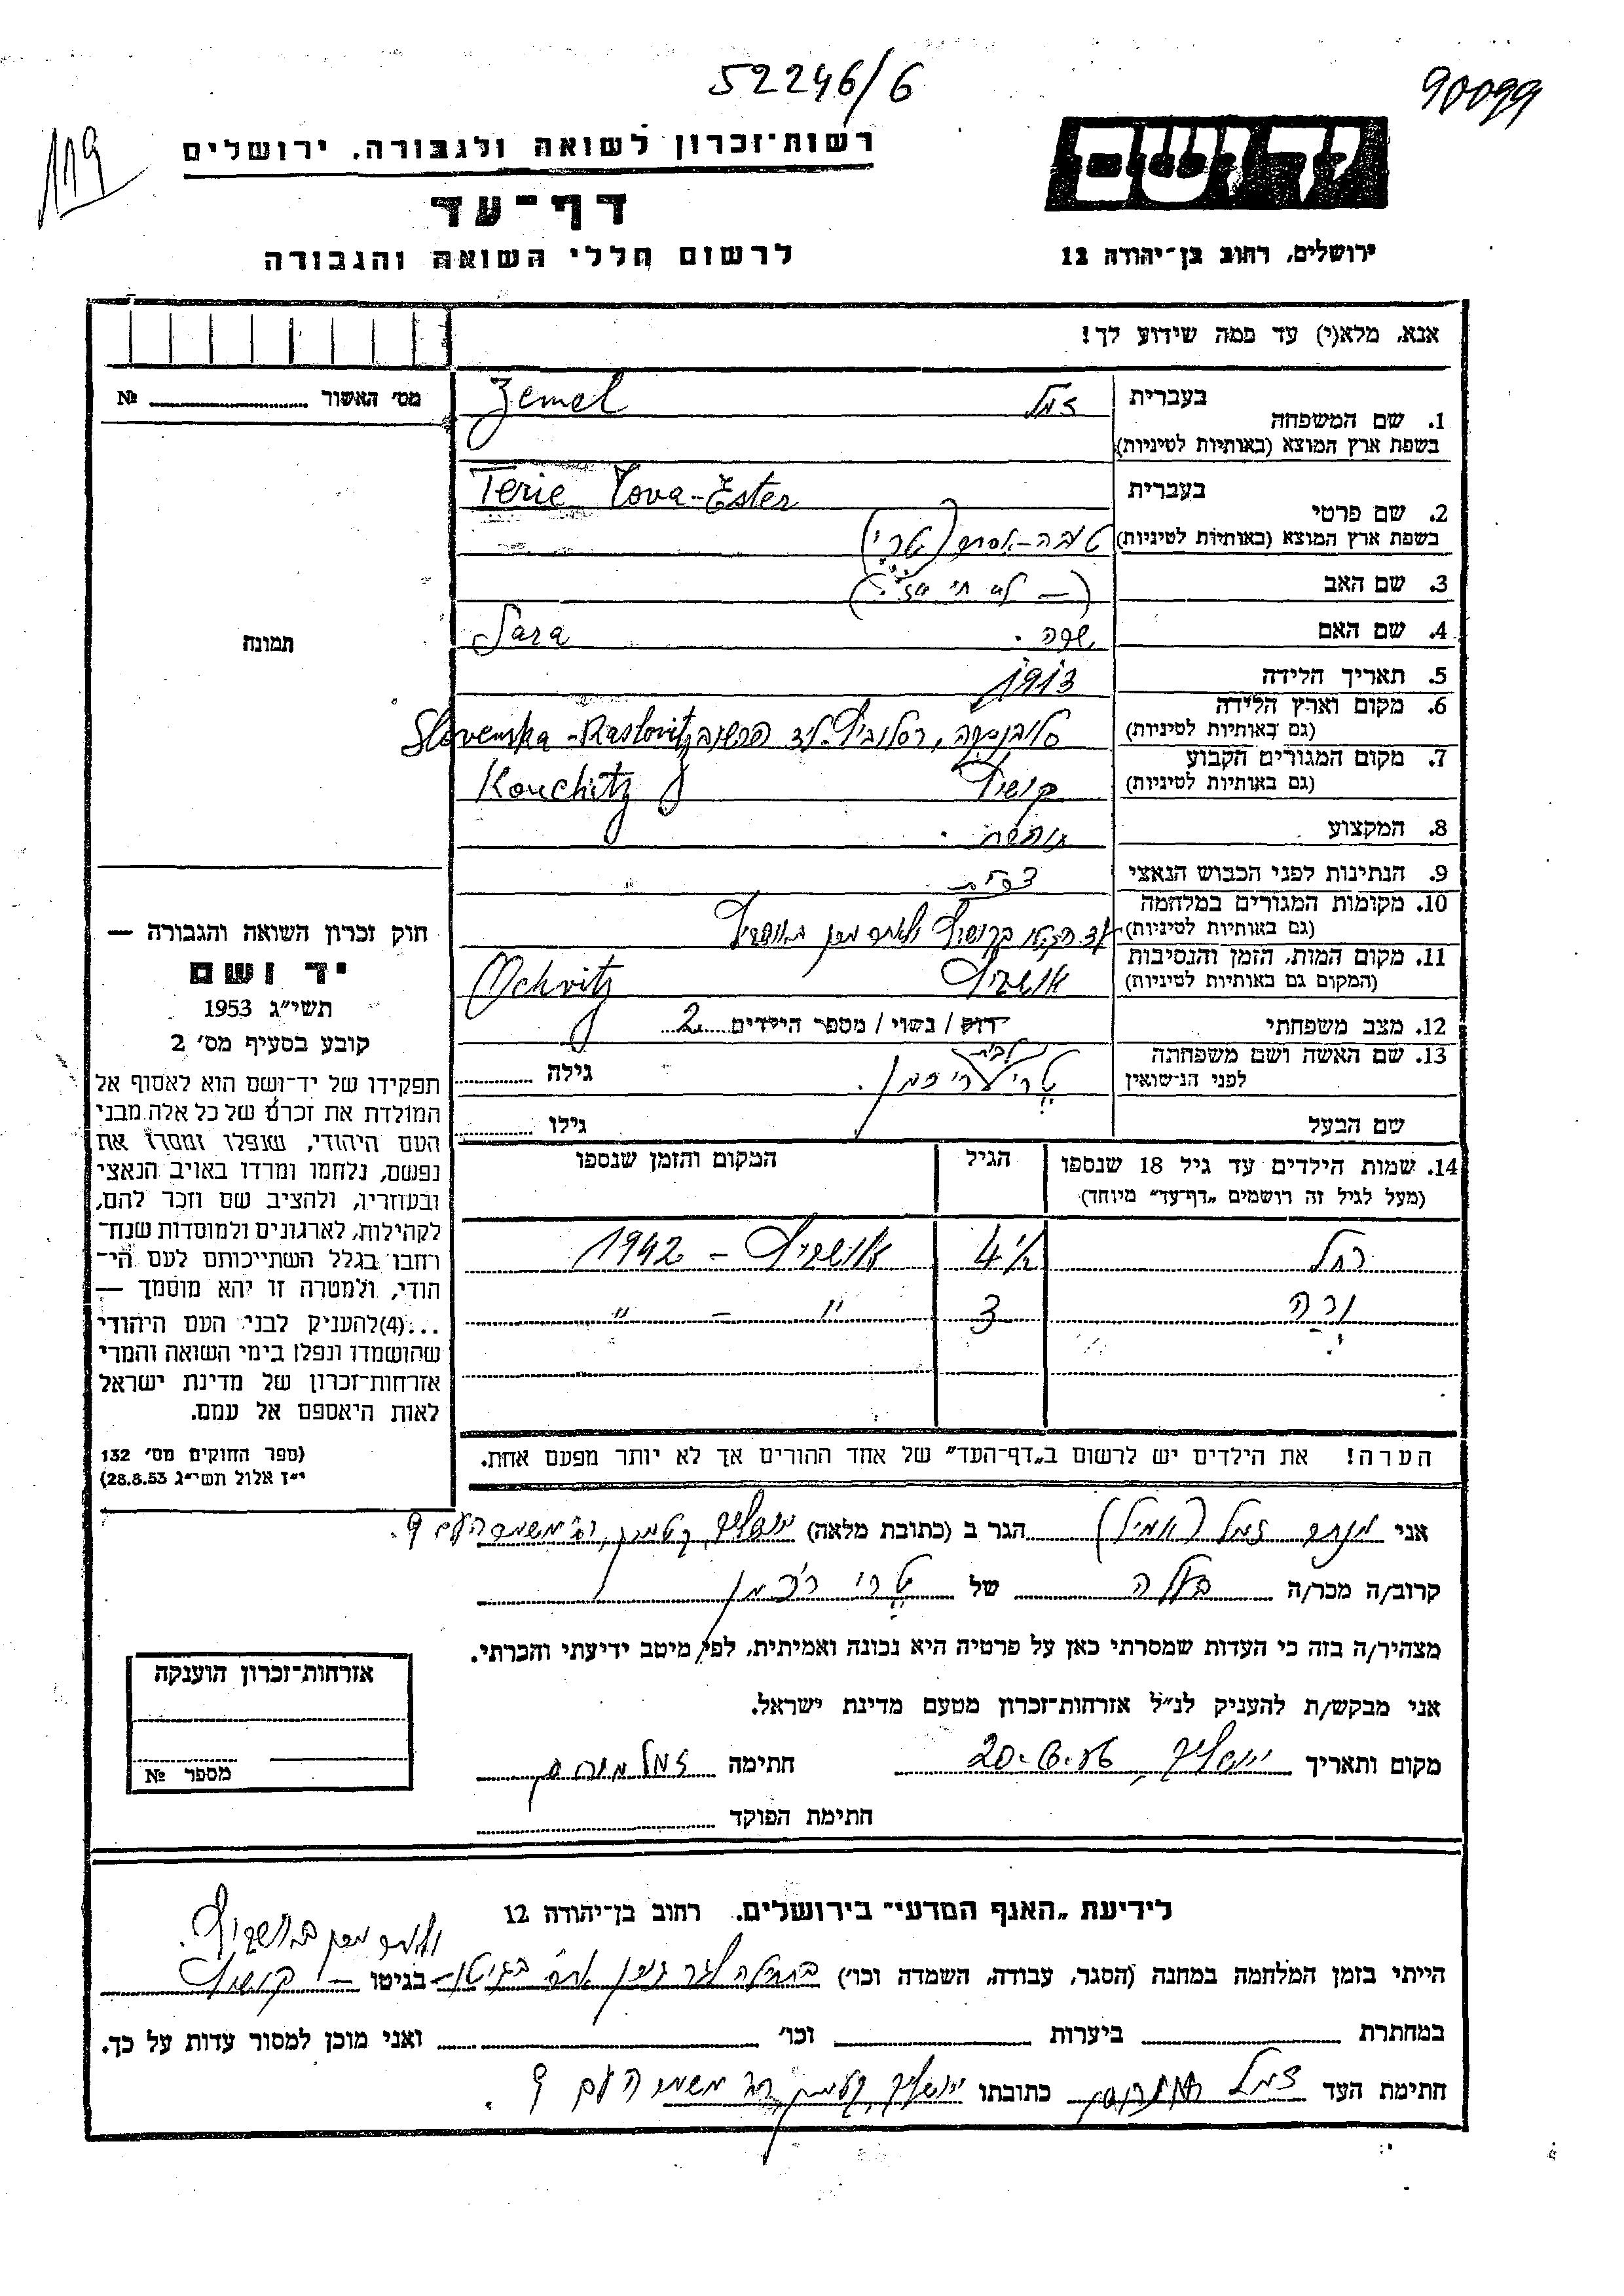 52246/6
90099
119
יד ושם
רשות-זכרון לשואה ולגבורה, ירושלים
דף-עד
לרשום חללי השואה והגבורה
ירושלים, רחוב בן-יהודה 12
אנא, מלא(י) עד כמה שידוע לך!
מס׳ האשור № ........
1. שם המשפחה
בעברית זמל Zemel
בשפת ארץ המוצא (באותיות לטיניות)
2. שם פרטי
בעברית Terie Tova-Ester
בשפת ארץ המוצא (באותיות לטיניות) טובה-אסתר (טרי)
3. שם האב
4. שם האם שרה. Sara
5. תאריך הלידה 1913
6. מקום וארץ הלידה
(גם באותיות לטיניות) Slovenska-Raslovitz
7. מקום המגורים הקבוע
(גם באותיות לטיניות) קושיץ Kouchitz
8. המקצוע
9. הנתינות לפני הכבוש הנאצי
10. מקומות המגורים במלחמה
(גם באותיות לטיניות)
11. מקום המות, הזמן והנסיבות
(המקום גם באותיות לטיניות) אושויץ Ochvitz
12. מצב משפחתי רווק / נשוי / מספר הילדים 2
13. שם האשה ושם משפחתה
לפני הנשואין טרי גילה ........
שם הבעל גילו ........
14. שמות הילדים עד גיל 18 שנספו
(מעל לגיל זה רושמים „דף-עד״ מיוחד)
הגיל
המקום והזמן שנספו
רחל 4½ אושויץ - 1942
ורה 3 " - "
הערה! את הילדים יש לרשום ב„דף-העד״ של אחד ההורים אך לא יותר מפעם אחת.
תמונה
חוק זכרון השואה והגבורה —
יד ושם
תשי״ג 1953
קובע בסעיף מס׳ 2
תפקידו של יד-ושם הוא לאסוף אל
המולדת את זכרם של כל אלה מבני
העם היהודי, שנפלו ומסרו את
נפשם, נלחמו ומרדו באויב הנאצי
ובעוזריו, ולהציב שם וזכר להם,
לקהילות, לארגונים ולמוסדות שנח-
רחבו בגלל השתייכותם לעם הי-
הודי, ולמטרה זו יהא מוסמך —
...(4)להעניק לבני העם היהודי
שהושמדו ונפלו בימי השואה והמרי
אזרחות-זכרון של מדינת ישראל
לאות היאספם אל עמם.
(ספר החוקים מס׳ 132
י״ז אלול תשי״ג 28.8.53)
אני זמל (אמיל) הגר ב (כתובת מלאה) ירושלים, קטמון, רח׳ משמר העם 9.
קרוב/ה מכר/ה בעלה של טרי
מצהיר/ה בזה כי העדות שמסרתי כאן על פרטיה היא נכונה ואמיתית, לפי מיטב ידיעתי והכרתי.
אני מבקש/ת להעניק לנ״ל אזרחות-זכרון מטעם מדינת ישראל.
מקום ותאריך ירושלים, 20.6. חתימה זמל
חתימת הפוקד
אזרחות-זכרון הוענקה
מספר №
לידיעת „האגף המדעי״ בירושלים. רחוב בן-יהודה 12
הייתי בזמן המלחמה במחנה (הסגר, עבודה, השמדה וכו׳) בגיטו — קושיץ
במחתרת ביערות וכו׳ ואני מוכן למסור עדות על כך.
חתימת העד זמל כתובתו ירושלים, קטמון, רח׳ משמר העם 9.